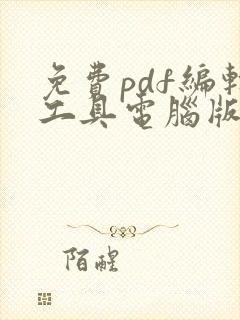 免費pdf編輯
工具電腦版
陌醒